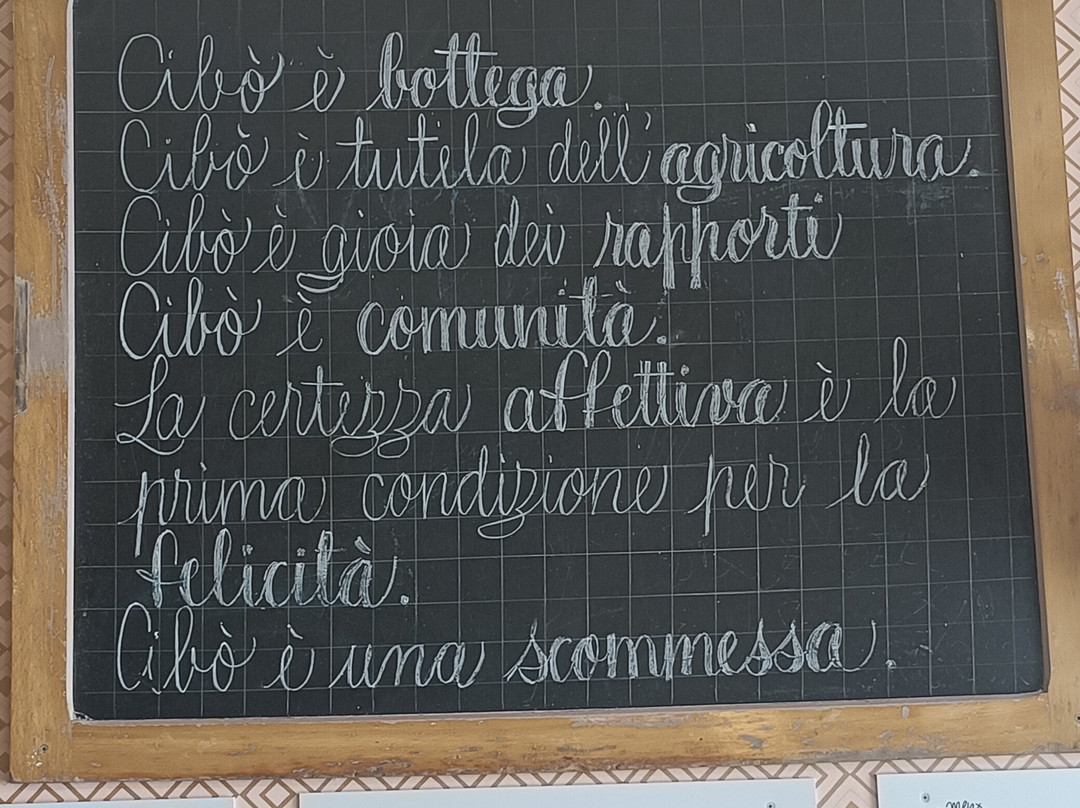 Cibò è bottega.
Cibò è tutela dell'agricoltura.
Cibò è gioia dei rapporti
Cibò è comunità.
La certezza affettiva è la
prima condizione per la
felicità.
Cibò è una scommessa.
menu